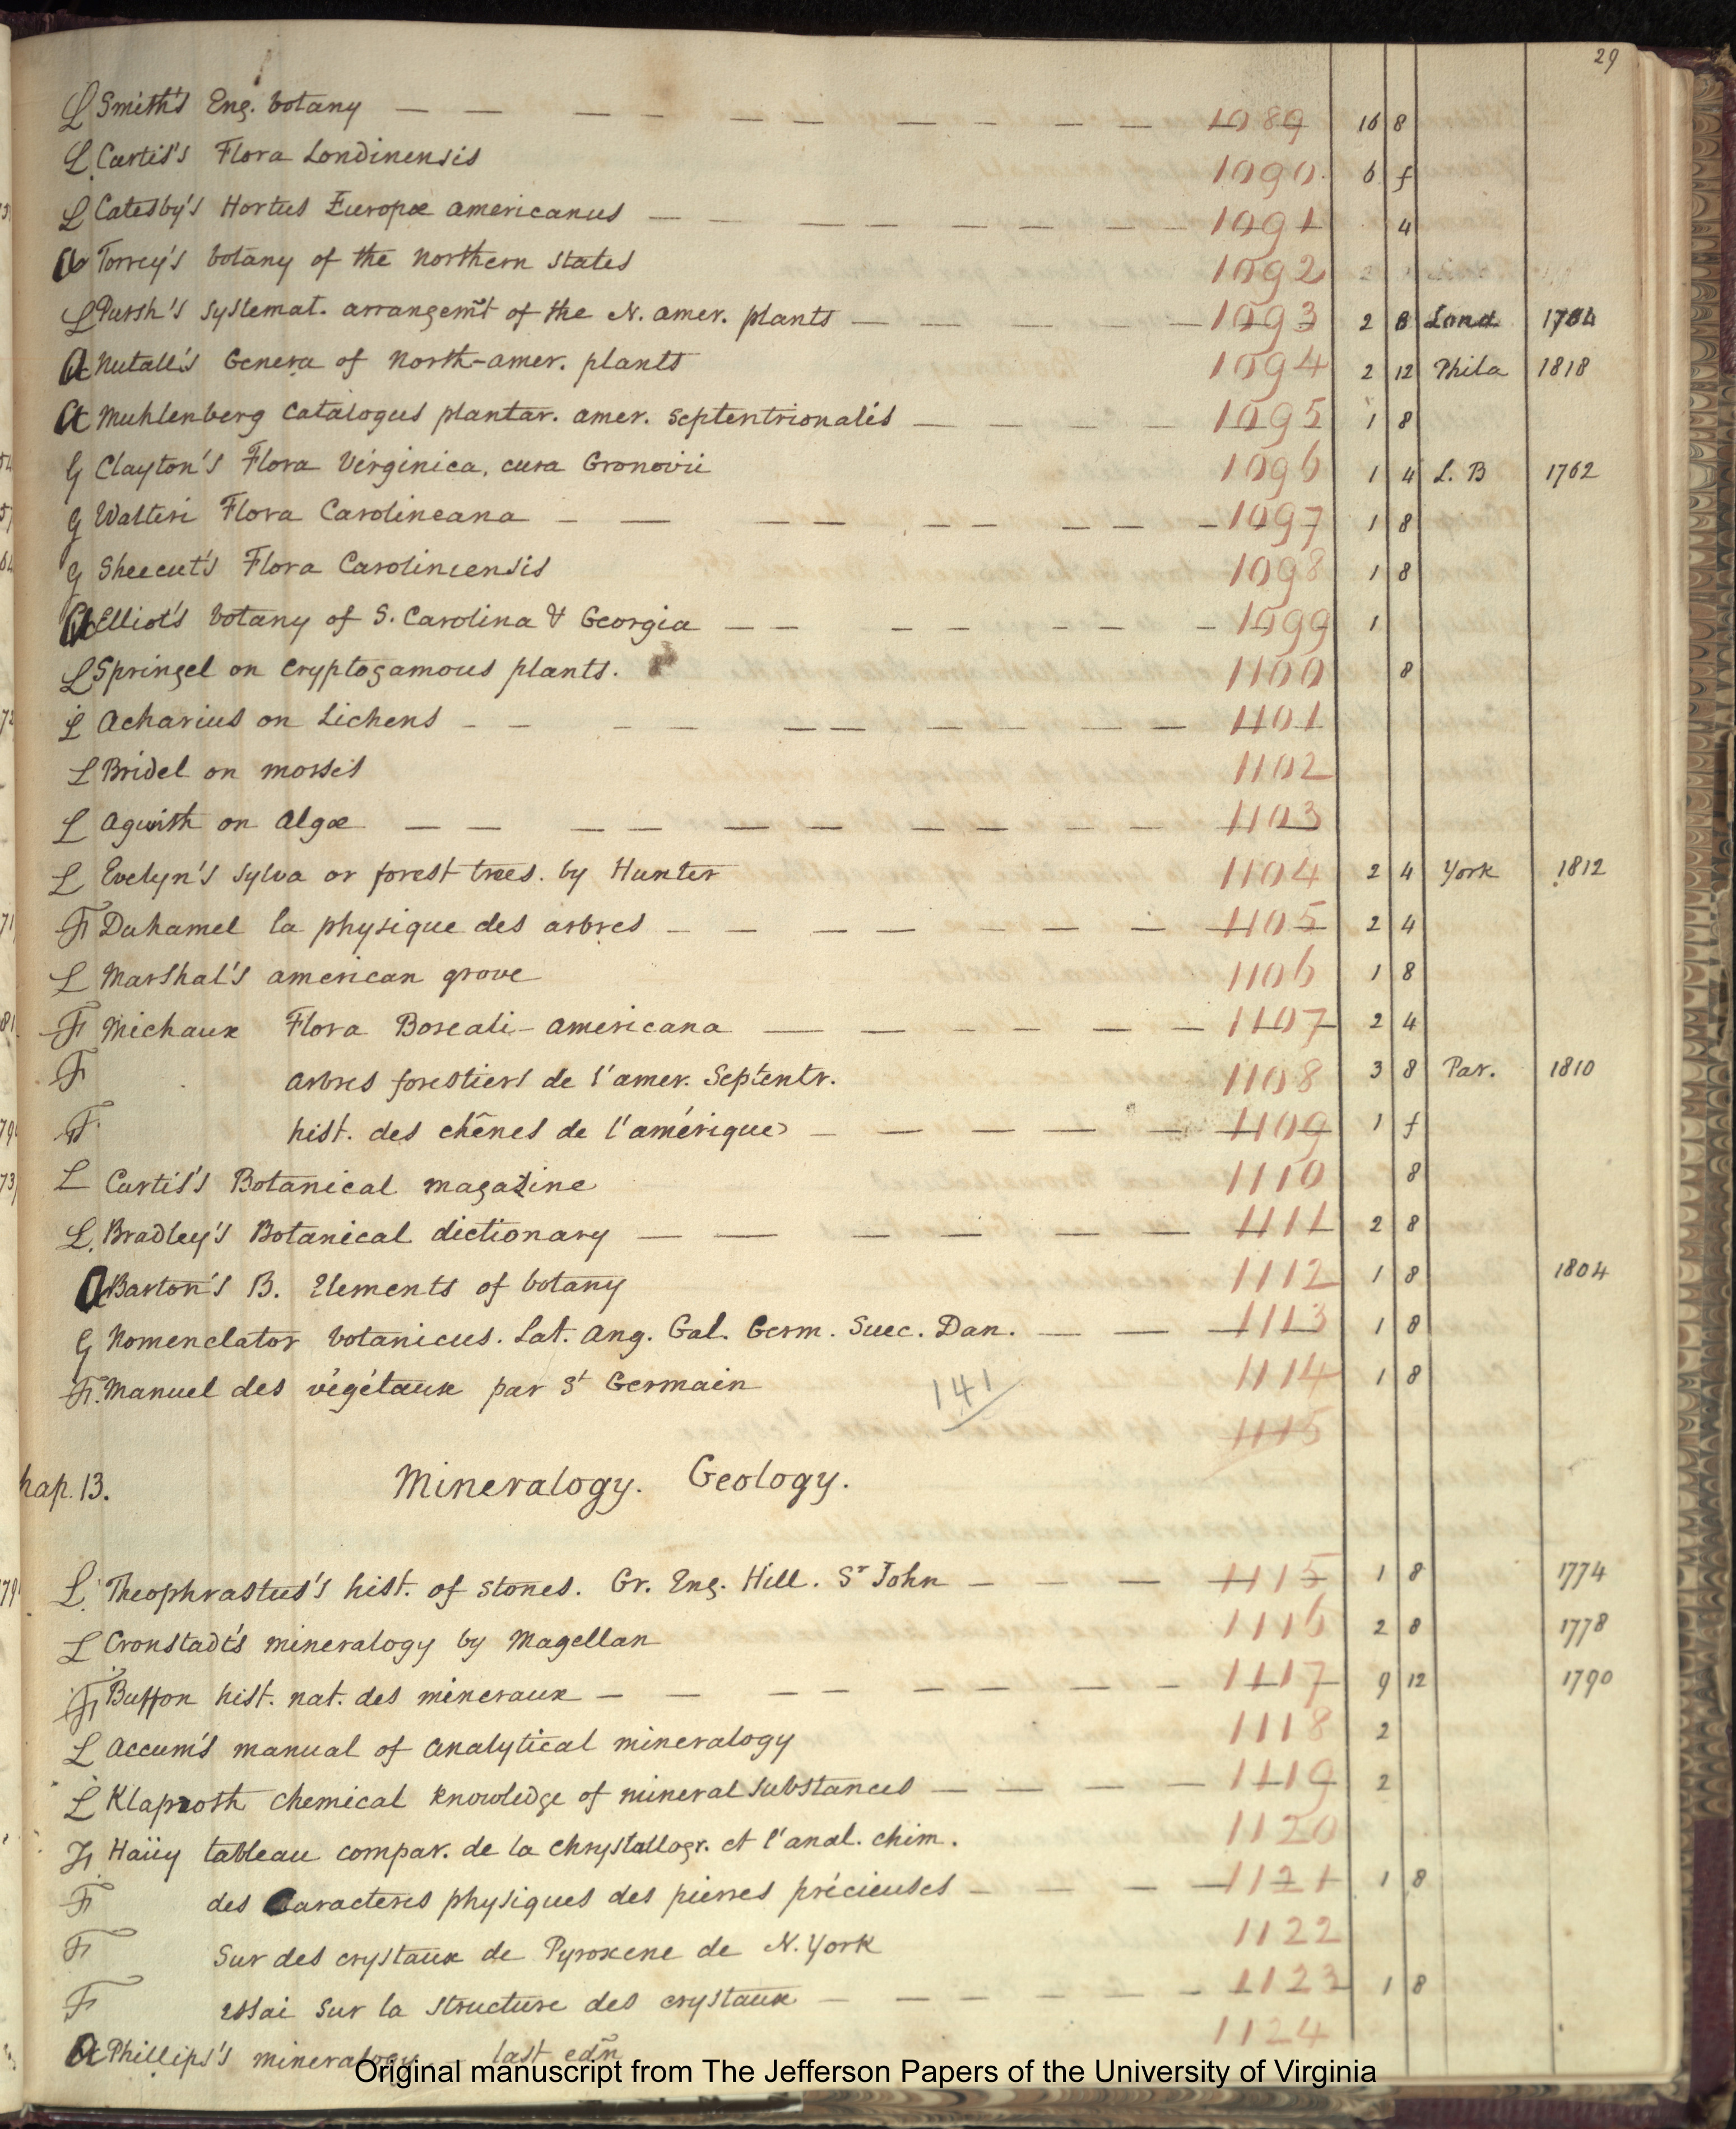 29
L Smith's Eng. botany — 1089 16 8
L. Curtis's Flora Londinensis 1090. 6 f
L Catesby's Hortus Europæ americanus — 1091 4
A Torrey's botany of the Northern States 1092
L Pursh's systemat. arrangem̃t of the N. amer. plants — 1093 2 8 Lond. 1704
A Nutall's Genera of North-amer. plants 1094 2 12 Phila 1818
A Muhlenberg Catalogus plantar. amer. Septentrionalis — 1095 1 8
G Clayton's Flora Virginica, cura Gronovii 1096 1 4 L. B 1762
G Walteri Flora Carolineana — 1097 1 8
G Sheecut's Flora Caroliniensis 1098 1 8
A Elliot's botany of S. Carolina & Georgia — 1099 1
L Springel on Cryptogamous plants. 1100 8
L Acharius on Lichens — 1101
L Bridel on mosses 1102
L Agwith on Algæ — 1103
L Evelyn's Sylva or forest trees. by Hunter 1104 2 4 York 1812
F Duhamel la physique des arbres — 1105 2 4
L Marshal's american grove 1106 1 8
F Michaux Flora Boreali-americana — 1107 2 4
F arbres forestiers de l'amer. Septentr. 1108 3 8 Par. 1810
F hist. des chênes de l'amérique — 1109 1 f
L Curtis's Botanical magazine 1110 8
L. Bradley's Botanical dictionary — 1111 2 8
A Barton's B. Elements of botany 1112 1 8 1804
G Nomenclator botanicus. Lat. Ang. Gal. Germ. Suec. Dan. — 1113 1 8
F. Manuel des végétaux par St Germain 1114 1 8
141
1115
hap. 13. Mineralogy. Geology.
L. Theophrastus's hist. of stones. Gr. Eng. Hill. Sr John — 1115 1 8 1774
L Cronstadt's mineralogy by Magellan 1116 2 8 1778
F Buffon hist. nat. des mineraux — 1117 9 12 1790
L Accum's manual of analytical mineralogy 1118 2
L Klaproth chemical knowledge of mineral substances — 1119 2
F Haüy tableau compar. de la Chrystallogr. et l'anal. chim. 1120
F des Caracteres physiques des pierres précieuses — 1121 1 8
F Sur des crystaux de Pyroxene de N. York 1122
F essai sur la structure des crystaux — 1123 1 8
A Phillips's mineralogy. — last edñ 1124
Original manuscript from The Jefferson Papers of the University of Virginia